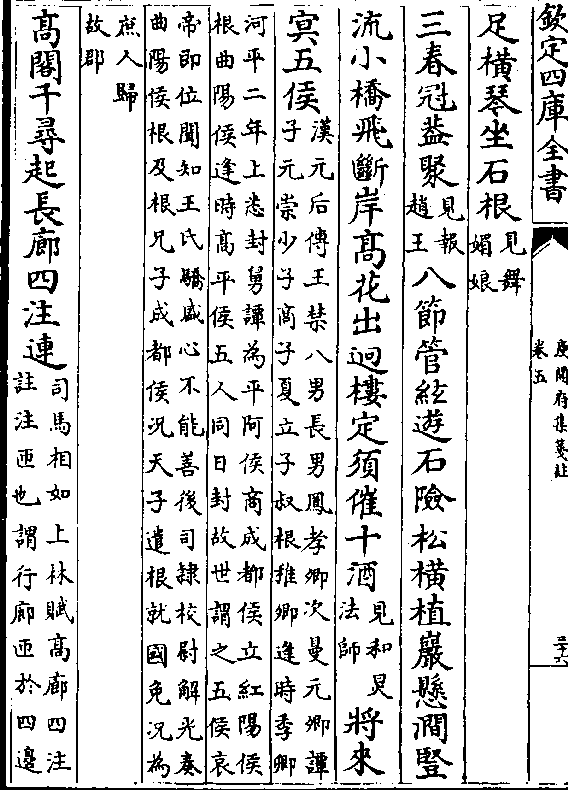 欽定四庫全書
庾開府集箋註
卷五
足橫琴坐石根見舞
媚娘
三春冠葢聚見報
趙王八節管絃遊石險松橫植巖懸澗豎
流小橋飛斷岸髙花出迥樓定須催十酒見和炅
法師將來
宴五侯漢元后傳王禁八男長男鳳孝卿次曼元卿譚
子元崇少子商子夏立子叔根稚卿逢時季卿
河平二年上悉封舅譚為平阿侯商成都侯立紅陽侯
根曲陽侯逢時髙平侯五人同日封故世謂之五侯哀
帝即位聞知王氏驕盛心不能善後司隸校尉解光奏
曲陽侯根及根兄子成都侯況天子遣根就國免況為
庶人歸
故郡
髙閣千尋起長廊四注連司馬相如上林賦髙廊四注
註注匝也謂行廊匝於四邊